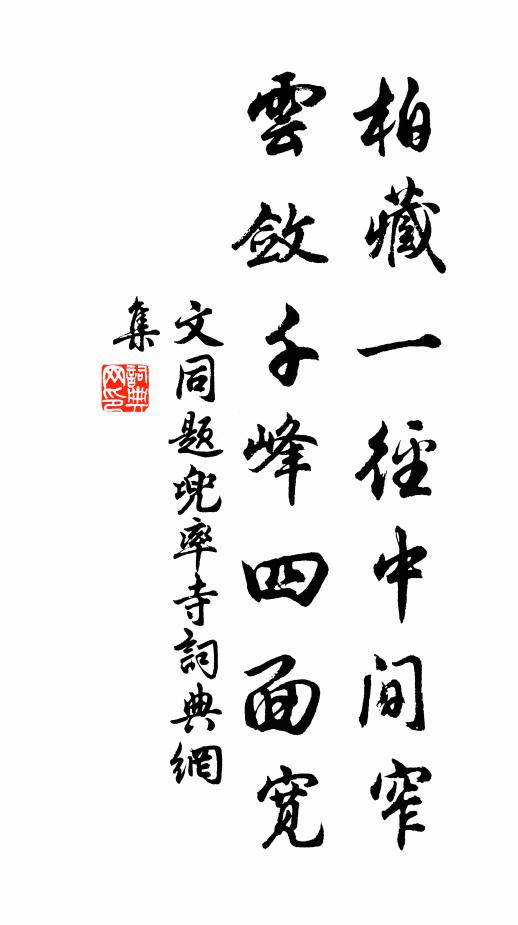 柏藏一徑中間窄
雲斂千峰四面寬
文同題兜率寺詞典網
集
詞典網印